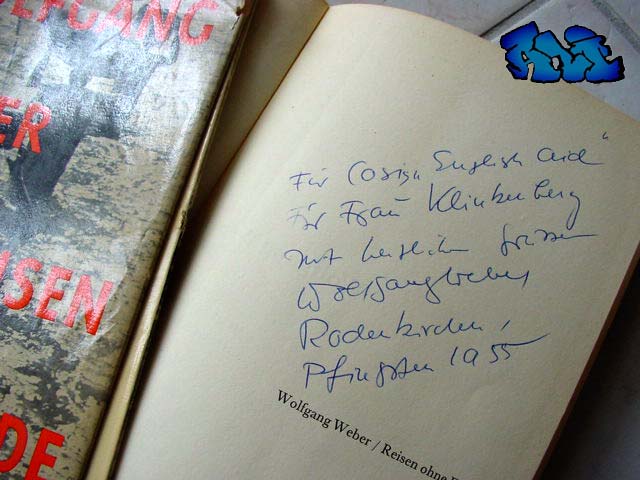 OLFGANG
ER
ISEN
DE
Für Cosign English Aid"
für Frau Klinkenberg
mit herzlichen Grüssen
Wolfgang Weber
Rodenkirchen,
Pfingsten 1955
Wolfgang Weber / Reisen ohne